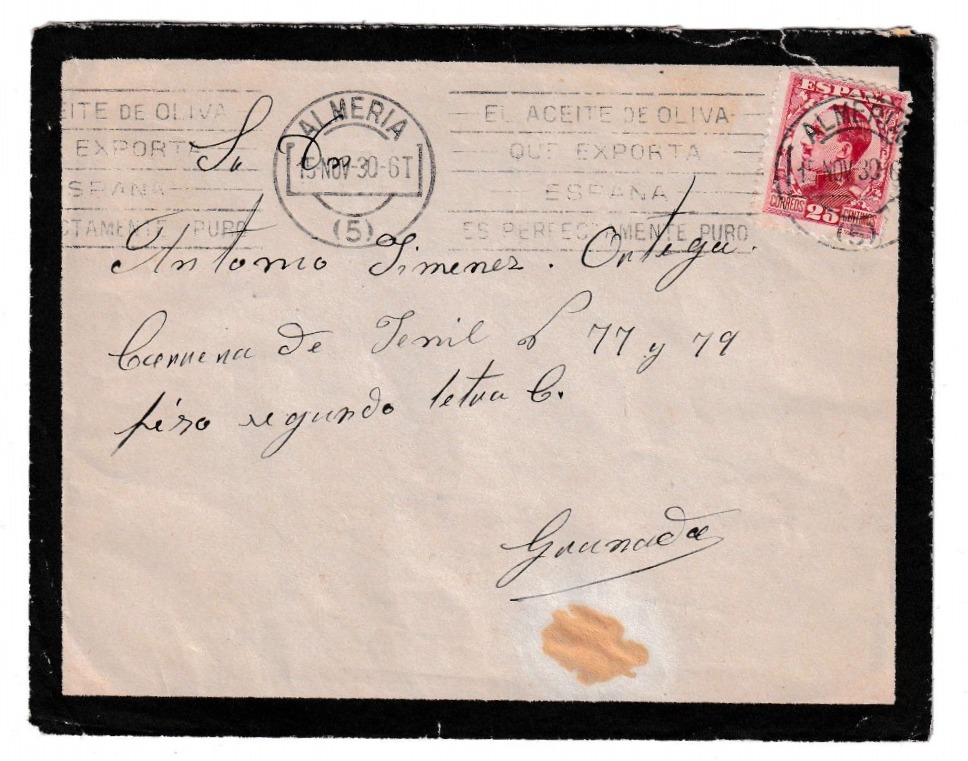 EITE DE OLIVA
EXPORTA
ESPAÑA
CTAMENTE PURO
ALMERIA
15 NOV 30 - 6 T
(5)
EL ACEITE DE OLIVA
QUE EXPORTA
ESPAÑA
ES PERFECTAMENTE PURO
ESPAÑA
CORREOS 25 CENTIMOS
ALMERIA
15 NOV 30 - 6
(5)
Sr Dn
Antonio Jimenez . Ortega.
Carrera de Jenil 77 y 79
piso segundo letra C.
Granada